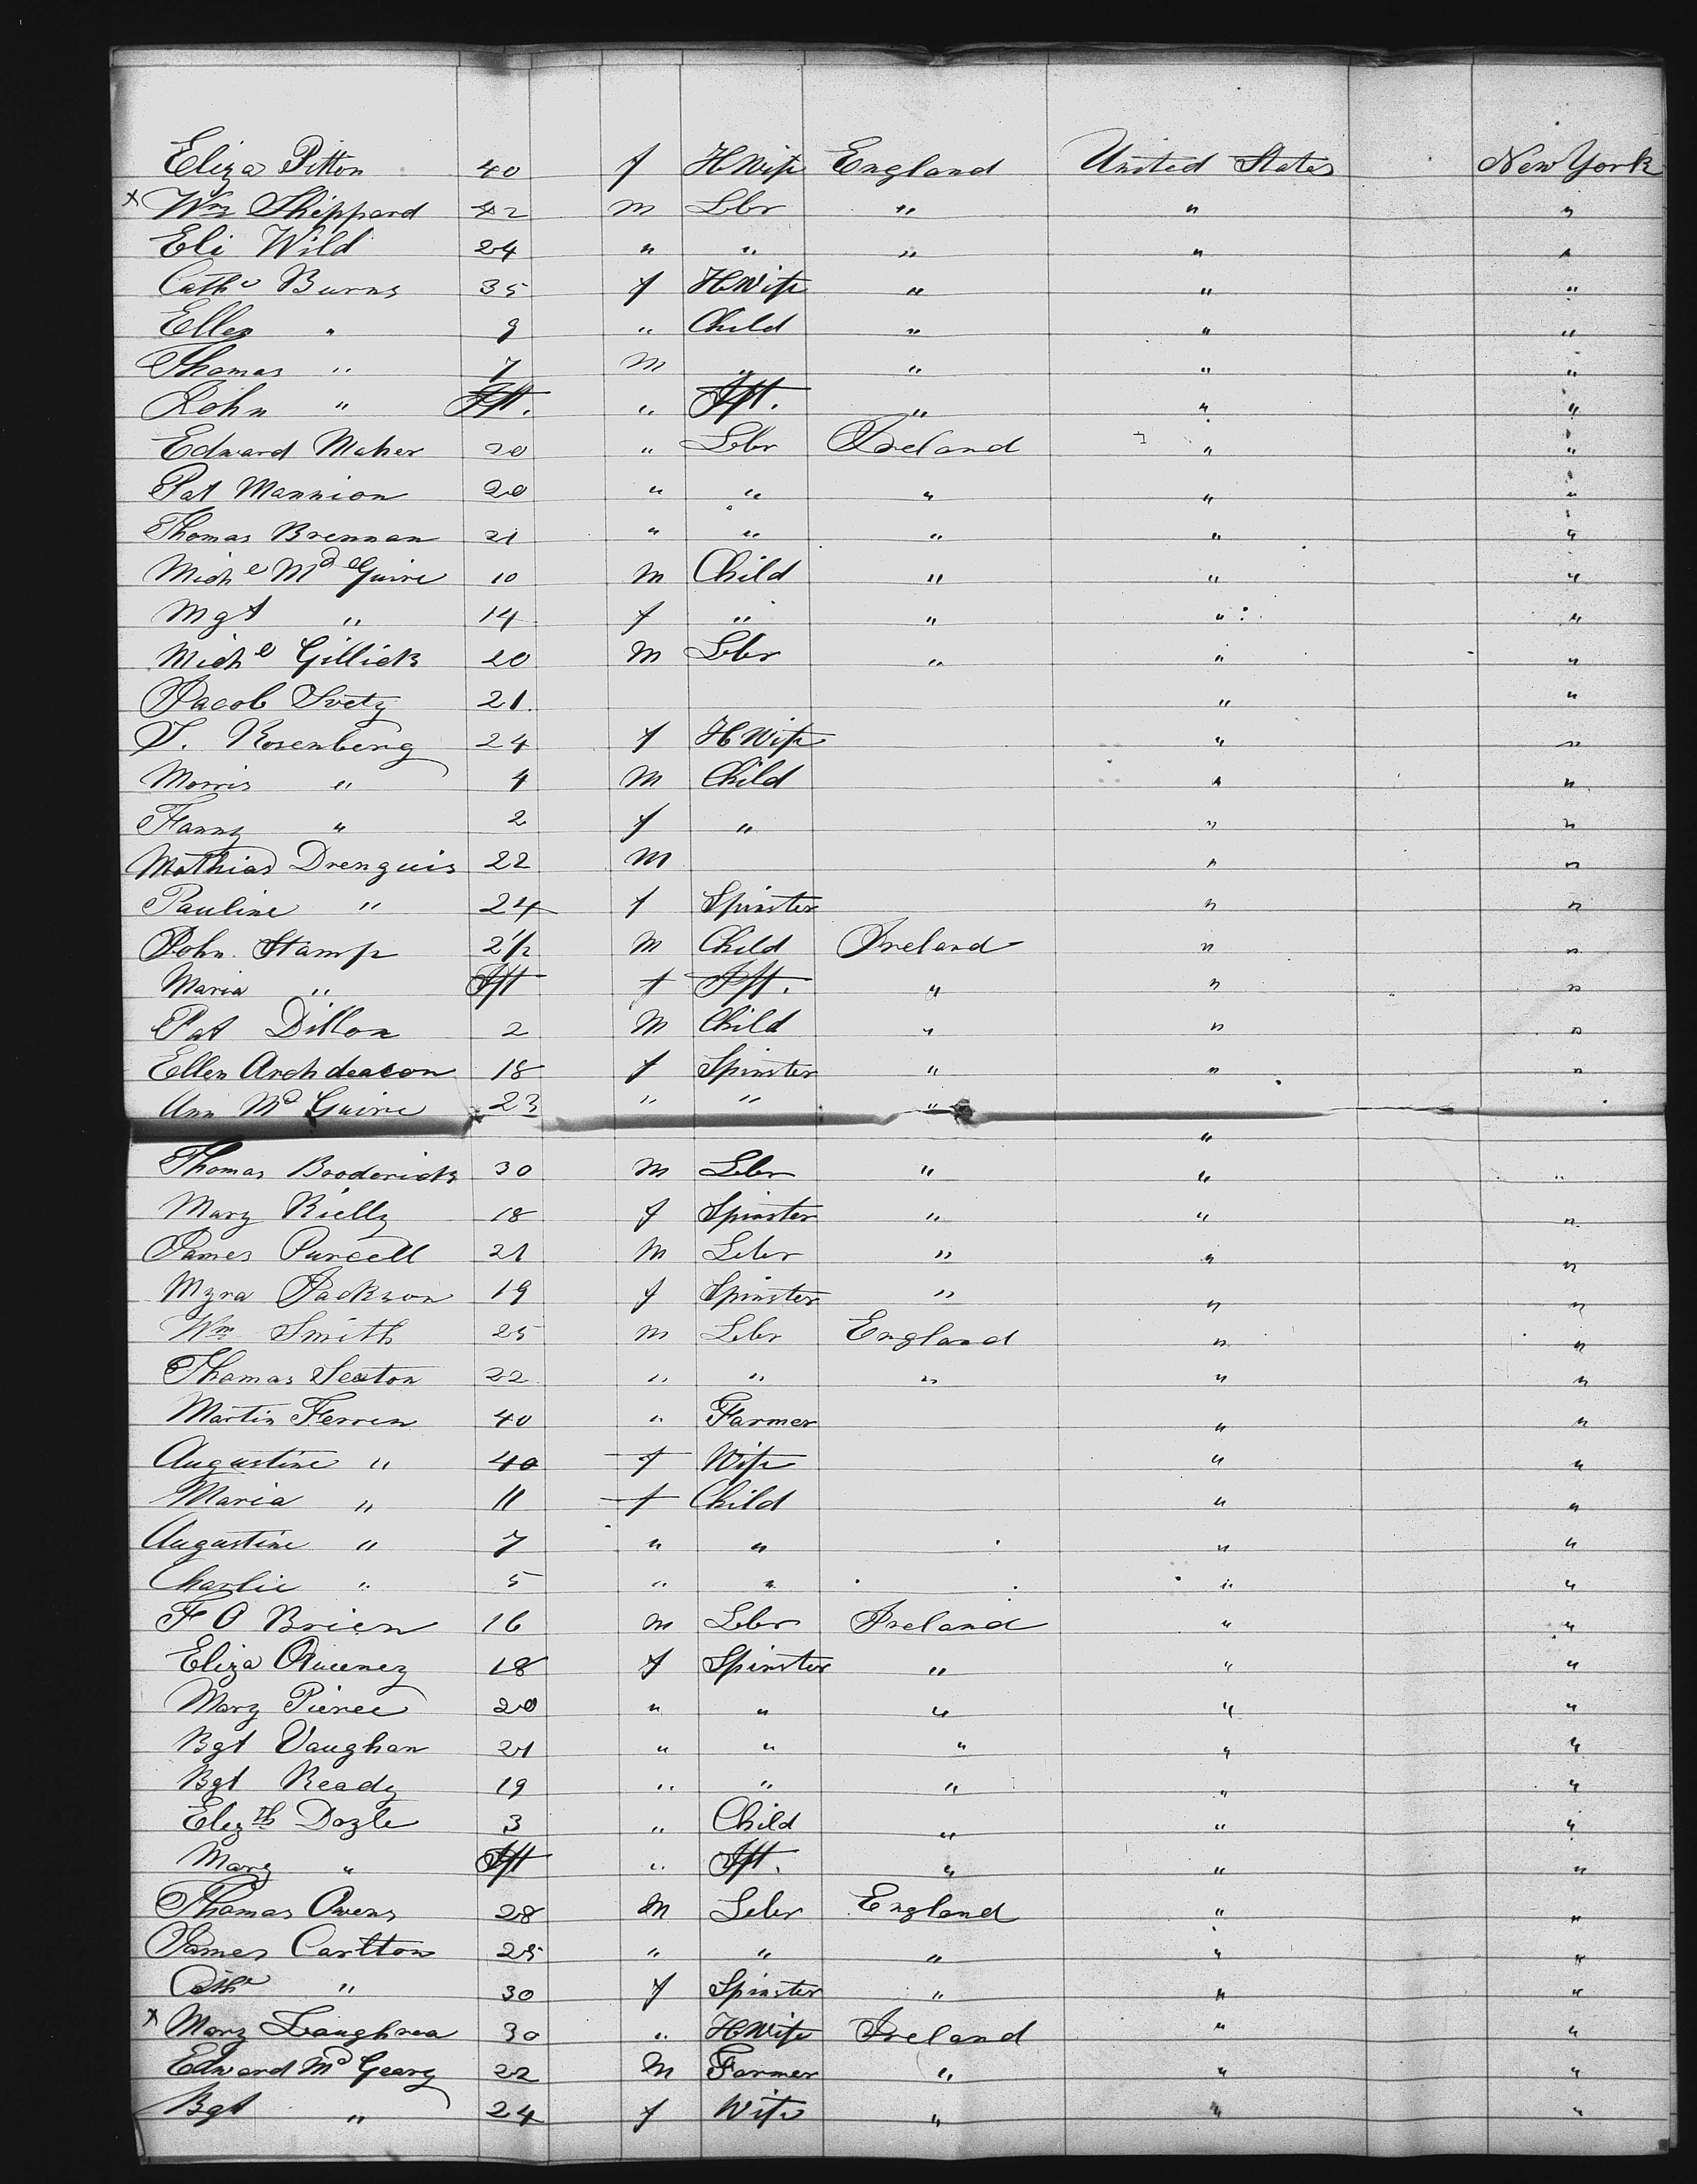 Eliza Pitton 40 f HWife England United States New York
x Wm Sheppard 42 m Lbr " " "
Eli Wild 24 " " " " "
Cathe Burns 35 f HWife " " "
Ellen " 9 " Child " " "
Thomas " 7 m " " " "
John " Ift. " Ift. " " "
Edward Maher 20 " Lbr Ireland " "
Pat Mannion 20 " " " " "
Thomas Brennan 21 " " " " "
Michl McGuire 10 m Child " " "
Mgt " 14 f " " " "
Michl Gillick 20 m Lbr " " "
Jacob Svety 21. " "
J. Rosenberg 24 f HWife " "
Morris " 4 m Child " "
Fanny " 2 f " " "
Mathias Drenguis 22 m " "
Pauline " 24 f Spinster " "
John Stamp 2 1/2 m Child Ireland " "
Maria " Ift f Ift. " " "
Pat Dillon 2 m Child " " "
Ellen Archdeacon 18 f Spinster " " "
Ann McGuire 23 " " " "
Thomas Broderick 30 m Lbr " " "
Mary Rielly 18 f Spinster " " "
James Purcell 21 m Lbr " " "
Myra Jackson 19 f Spinster " " "
Wm Smith 25 m Lbr England " "
Thomas Sexton 22 " " " " "
Martin Ferren 40 " Farmer " "
Augustine " 40 f Wife " "
Maria " 11 f Child " "
Augustine " 7 " " " "
Charlie " 5 " " " "
F O Brien 16 m Lbr Ireland " "
Eliza 18 f Spinster " " "
Mary Pierce 20 " " " " "
Bgt Vaughan 21 " " " " "
Bgt Ready 19 " " " " "
Elizth Doyle 3 " Child " " "
Mary " Ift " Ift. " " "
Thomas Owens 28 m Lbr England " "
James Carlton 25 " " " " "
Cathe " 30 f Spinster " " "
x Mary Loughrea 30 " HWife Ireland " "
Edward McGeary 22 m Farmer " " "
Bgt " 24 f Wife " " "